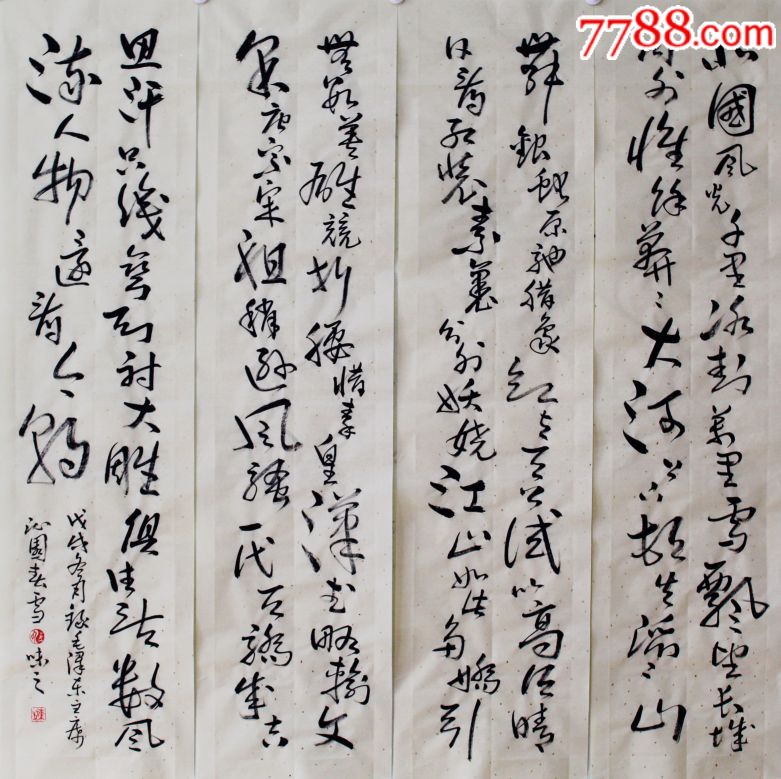 7788.com
北國風光千里冰封萬里雪飄望長城
内外惟餘莽〻大河上下頓失滔〻山
舞銀蛇原馳腊象欲与天公試比高須晴
日看紅裝素裹分外妖嬈江山如此多嬌引
無數英雄競折腰惜秦皇漢武略輸文
采唐宗宋祖稍遜風騷一代天驕成吉
思汗只識彎弓射大雕俱往矣數風
流人物還看今朝
戊戌冬月録毛澤東主席
沁園春雪 味之